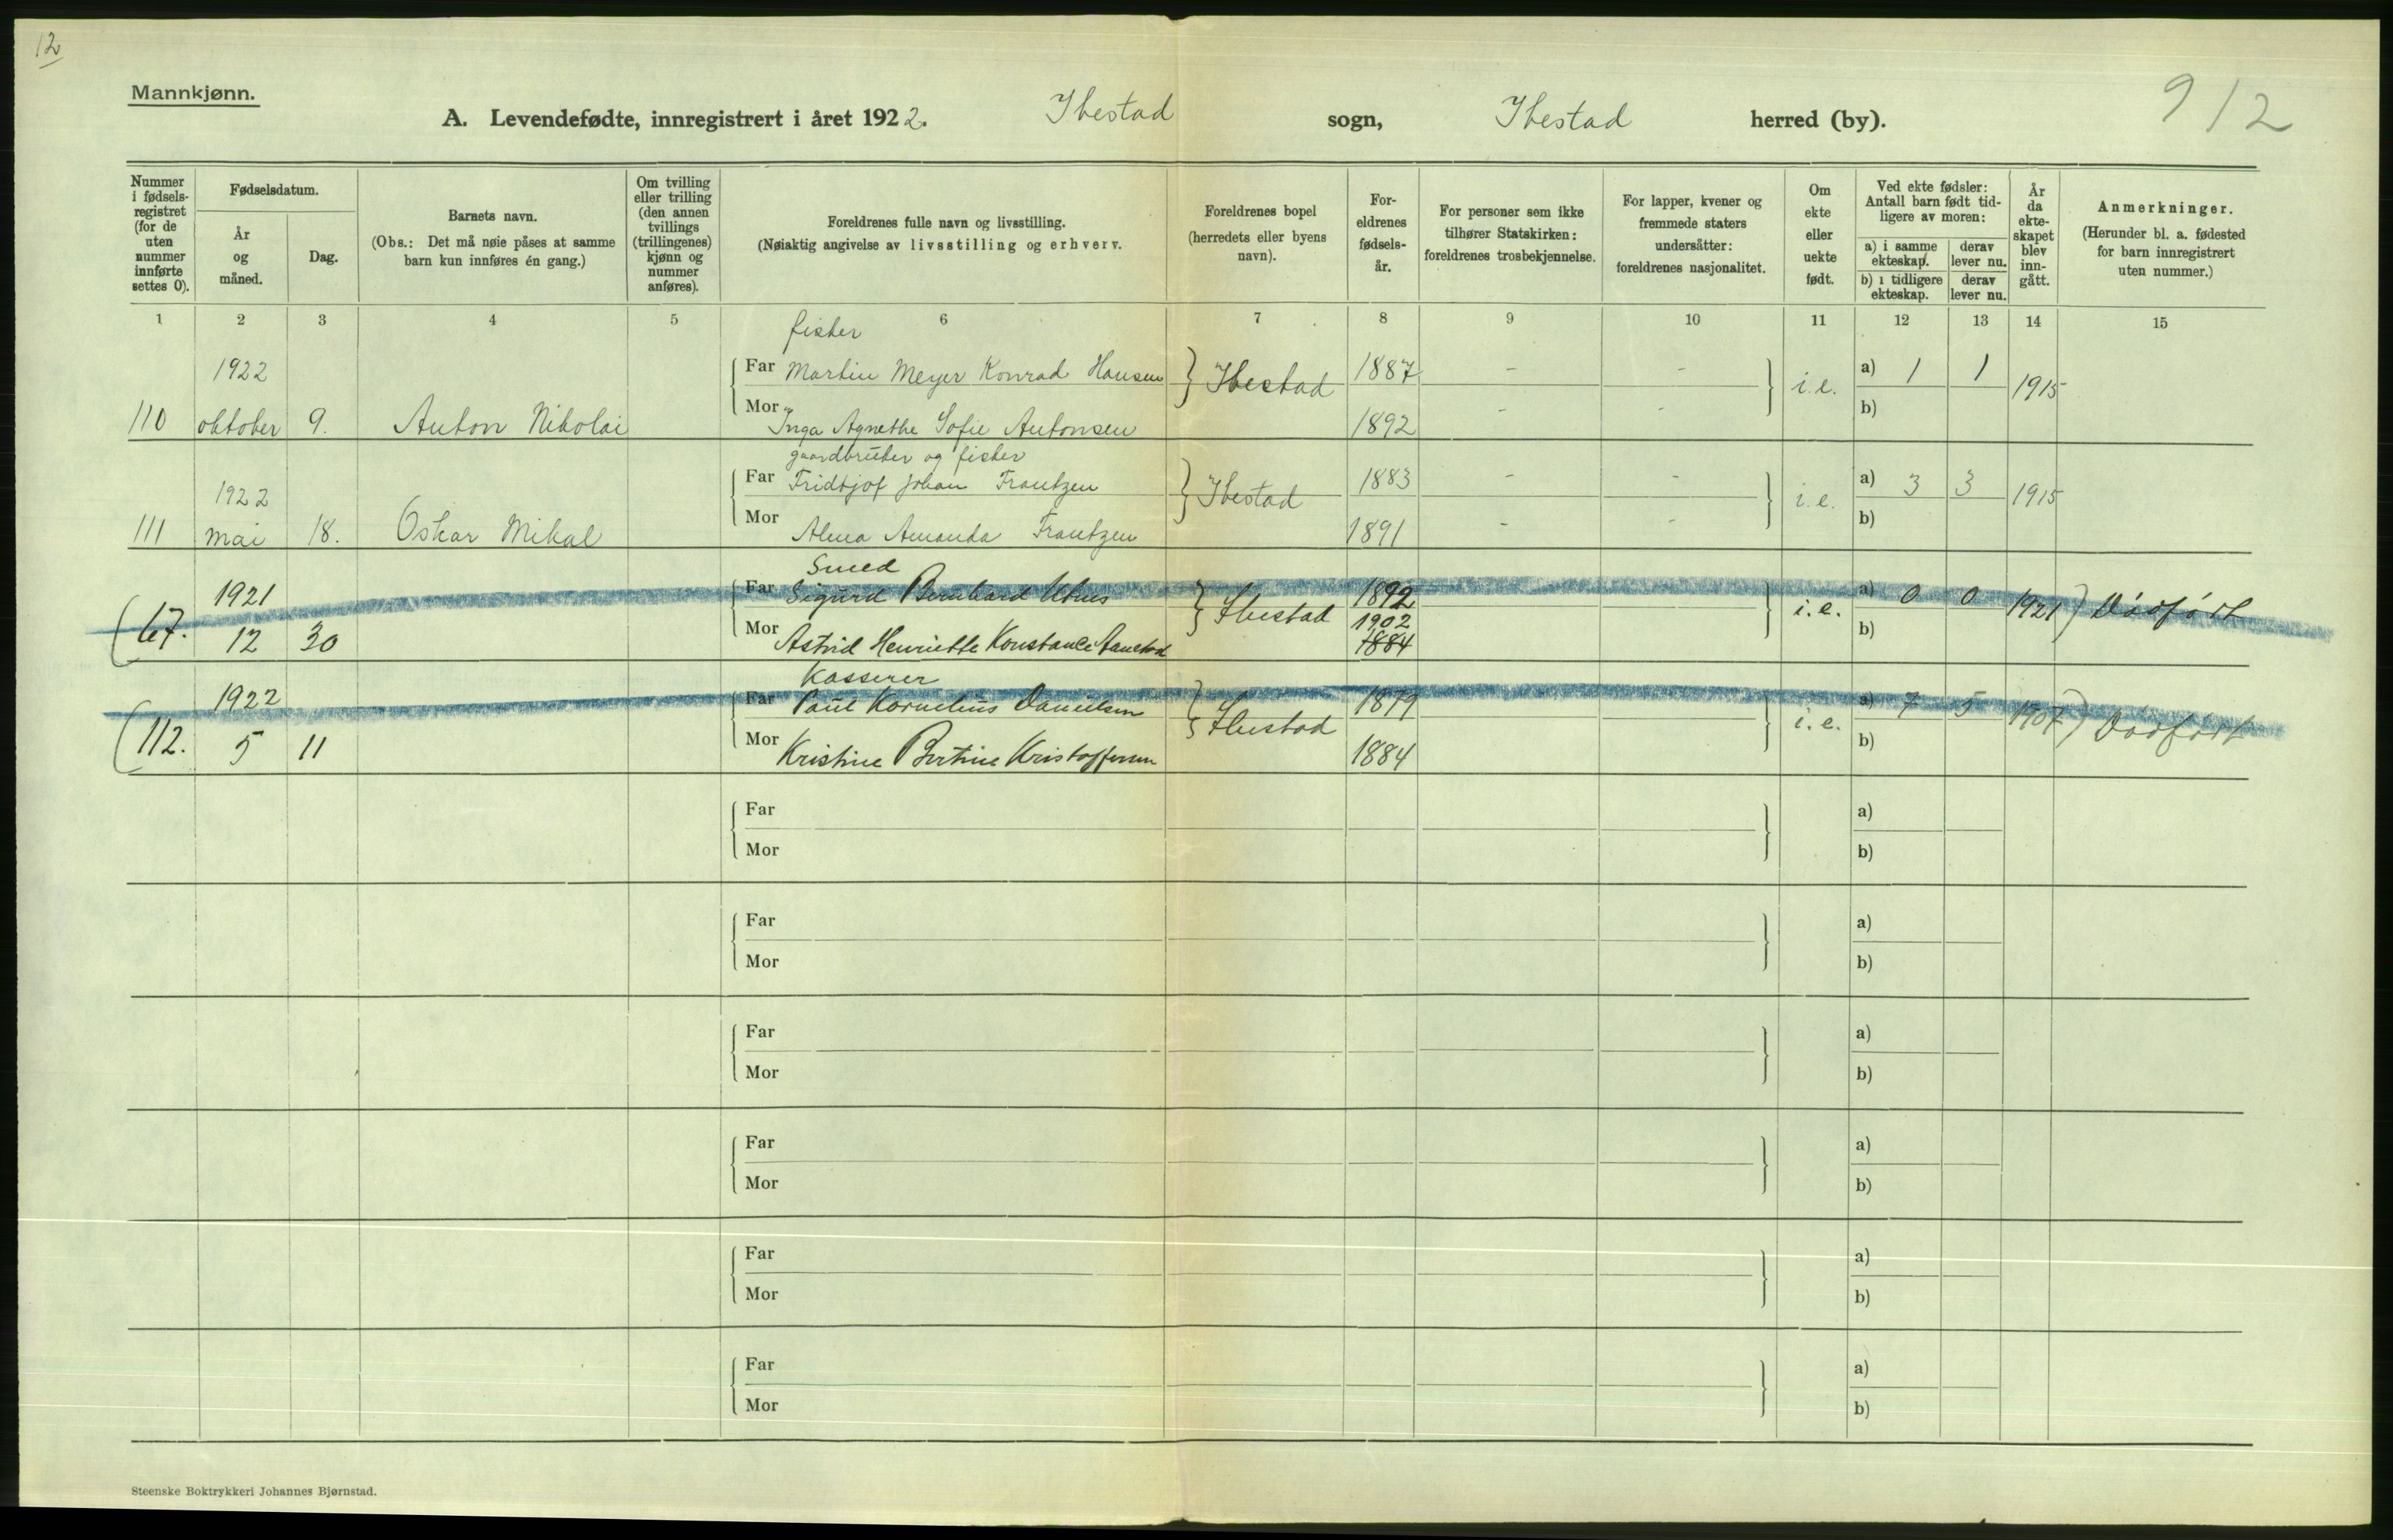 12
Mannkjønn.
A. Levendefødte, innregistrert i året 1922. Ibestad sogn, Ibestad herred (by).
912
Nummer i fødselsregistret (for de uten nummer innførte settes 0).
Fødselsdatum.
År og måned.
Dag.
Barnets navn.
(Obs.: Det må nøie påses at samme barn kun innføres én gang.)
Om tvilling eller trilling (den annen tvillings (trillingenes) kjønn og nummer anføres).
Foreldrenes fulle navn og livsstilling.
(Nøiaktig angivelse av livsstilling og erhverv.
Foreldrenes bopel (herredets eller byens navn).
Foreldrenes fødselsår.
For personer som ikke tilhører Statskirken: foreldrenes trosbekjennelse.
For lapper, kvener og fremmede staters undersåtter: foreldrenes nasjonalitet.
Om ekte eller uekte født.
Ved ekte fødsler: Antall barn født tidligere av moren:
a) i samme ekteskap. derav lever nu.
b) i tidligere ekteskap. derav lever nu.
År da ekteskapet blev inngått.
Anmerkninger.
(Herunder bl. a. fødested for barn innregistrert uten nummer.)
1 2 3 4 5 6 7 8 9 10 11 12 13 14 15
fisker
1922 Far Martin Meyer Konrad Hansen Ibestad 1887 - - i.e. a) 1 1 1915
110 oktober 9. Anton Nikolai Mor Inga Agnethe Sofie Antonsen 1892 - - b)
gaardbruker og fisker
1922 Far Fridtjof Johan Frantzen Ibestad 1883 - - i.e. a) 3 3 1915
111 mai 18. Oskar Mikal Mor Alma Amanda Frantzen 1891 - - b)
Smed
1921 Far Sigurd Bernhard Ibestad 1892 i.e. a) 0 0 1921) Dødfødt
(67. 12 30 Mor Astrid Henriette Konstance 1902 b)
1884
Kasserer
1922 Far Paul Kornelius Danielsen Ibestad 1879 i.e. a) 7 5 1907) Dødfødt
(112. 5 11 Mor Kristine Bertine Kristoffersen 1884 b)
Far a)
Mor b)
Far a)
Mor b)
Far a)
Mor b)
Far a)
Mor b)
Far a)
Mor b)
Far a)
Mor b)
Steenske Boktrykkeri Johannes Bjørnstad.